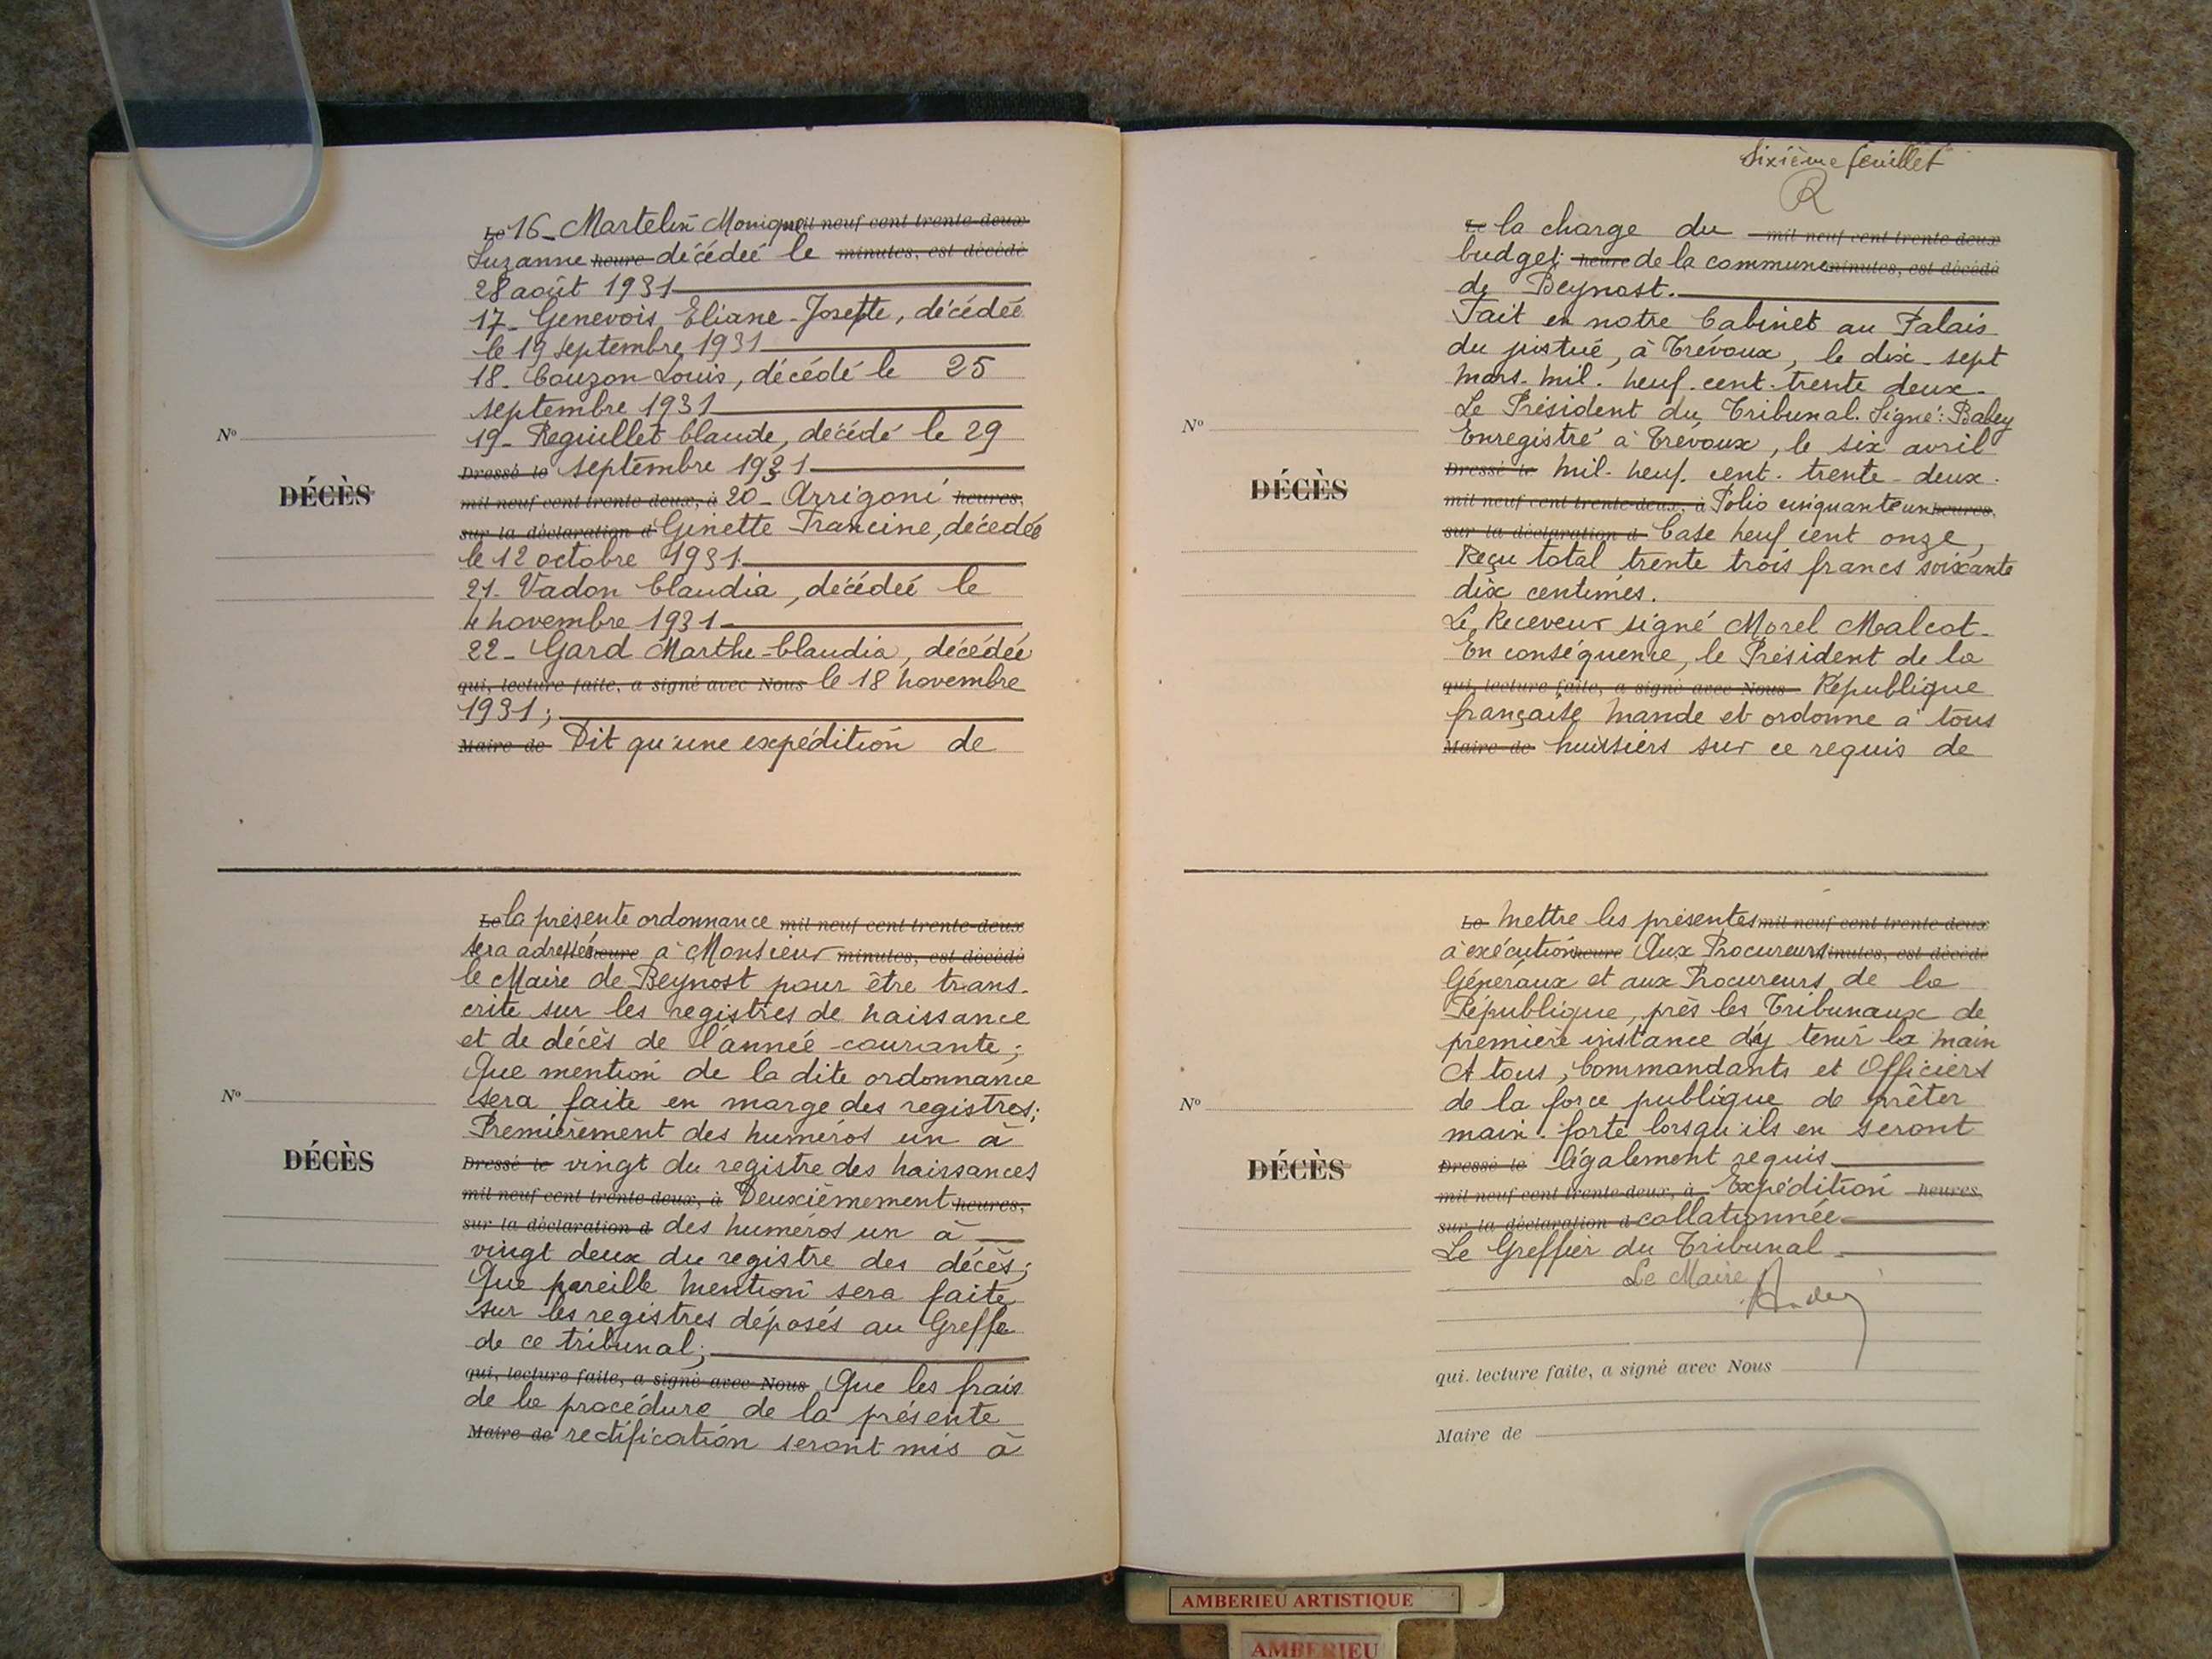 Le 16_ Martelin Monique mil neuf cent trente-deux
Suzanne heure décédée le minutes, est décédé
28 août 1931
17_ Genevois Eliane-Josette, décédée
le 19 septembre 1931
18_ Couzon Louis, décédé le 25
septembre 1931
19_ Reguillet Claude, décédé le 29
Nº
Dressé le septembre 1931
DÉCÈS
mil neuf cent trente-deux, à 20_ Arrigoni heures,
sur la déclaration d Ginette Francine, décédée
le 12 octobre 1931.
21_ Vadon Claudia, décédée le
4 novembre 1931_
22_ Gard Marthe-Claudia, décédée
qui, lecture faite, a signé avec Nous le 18 novembre
1931;
Maire de Dit qu'une expédition de
Le la présente ordonnance mil neuf cent trente-deux
sera adressée heure à Monsieur minutes, est décédé
le Maire de Beynost pour être trans-
crite sur les registres de naissance
et de décès de l'année courante;
Que mention de la dite ordonnance
Nº
sera faite en marge des registres;
Premièrement des numéros un à
DÉCÈS
Dressé le vingt du registre des naissances
mil neuf cent trente-deux, à Deuxièmement heures,
sur la déclaration d des numéros un à
vingt deux du registre des décès;
Que pareille mention sera faite
sur les registres déposés au Greffe
de ce tribunal;
qui, lecture faite, a signé avec Nous Que les frais
de la procédure de la présente
Maire de rectification seront mis à
Sixième feuillet
R
Le la charge du mil neuf cent trente-deux
budget heure de la commune minutes, est décédé
de Beynost.
Fait en notre Cabinet au Palais
du justice, à Trévoux, le dix-sept
mars-mil-neuf-cent-trente deux_
Le Président du Tribunal. Signé: Babey
Nº
Enregistré à Trévoux, le six avril
Dressé le mil-neuf-cent-trente-deux.
DÉCÈS
mil neuf cent trente-deux, à Folio cinquante un heures,
sur la déclaration d Case neuf cent onze,
Reçu total trente trois francs soixante
dix centimes.
Le Receveur signé Morel Malcot_
En conséquence, le Président de la
qui, lecture faite, a signé avec Nous République
française mande et ordonne à tous
Maire de huissiers sur ce requis de
Le mettre les présentes mil neuf cent trente-deux
à exécution heure Aux Procureurs minutes, est décédé
Généraux et aux Procureurs de la
République, près les Tribunaux de
première instance d'y tenir la main
A tous, Commandants et Officiers
Nº
de la force publique de prêter
main-forte lorsqu'ils en seront
DÉCÈS
Dressé le légalement requis
mil neuf cent trente-deux, à Expédition heures,
sur la déclaration d collationnée
Le Greffier du Tribunal_
Le Maire
qui, lecture faite, a signé avec Nous
Maire de
AMBERIEU ARTISTIQUE
AMBERIEU